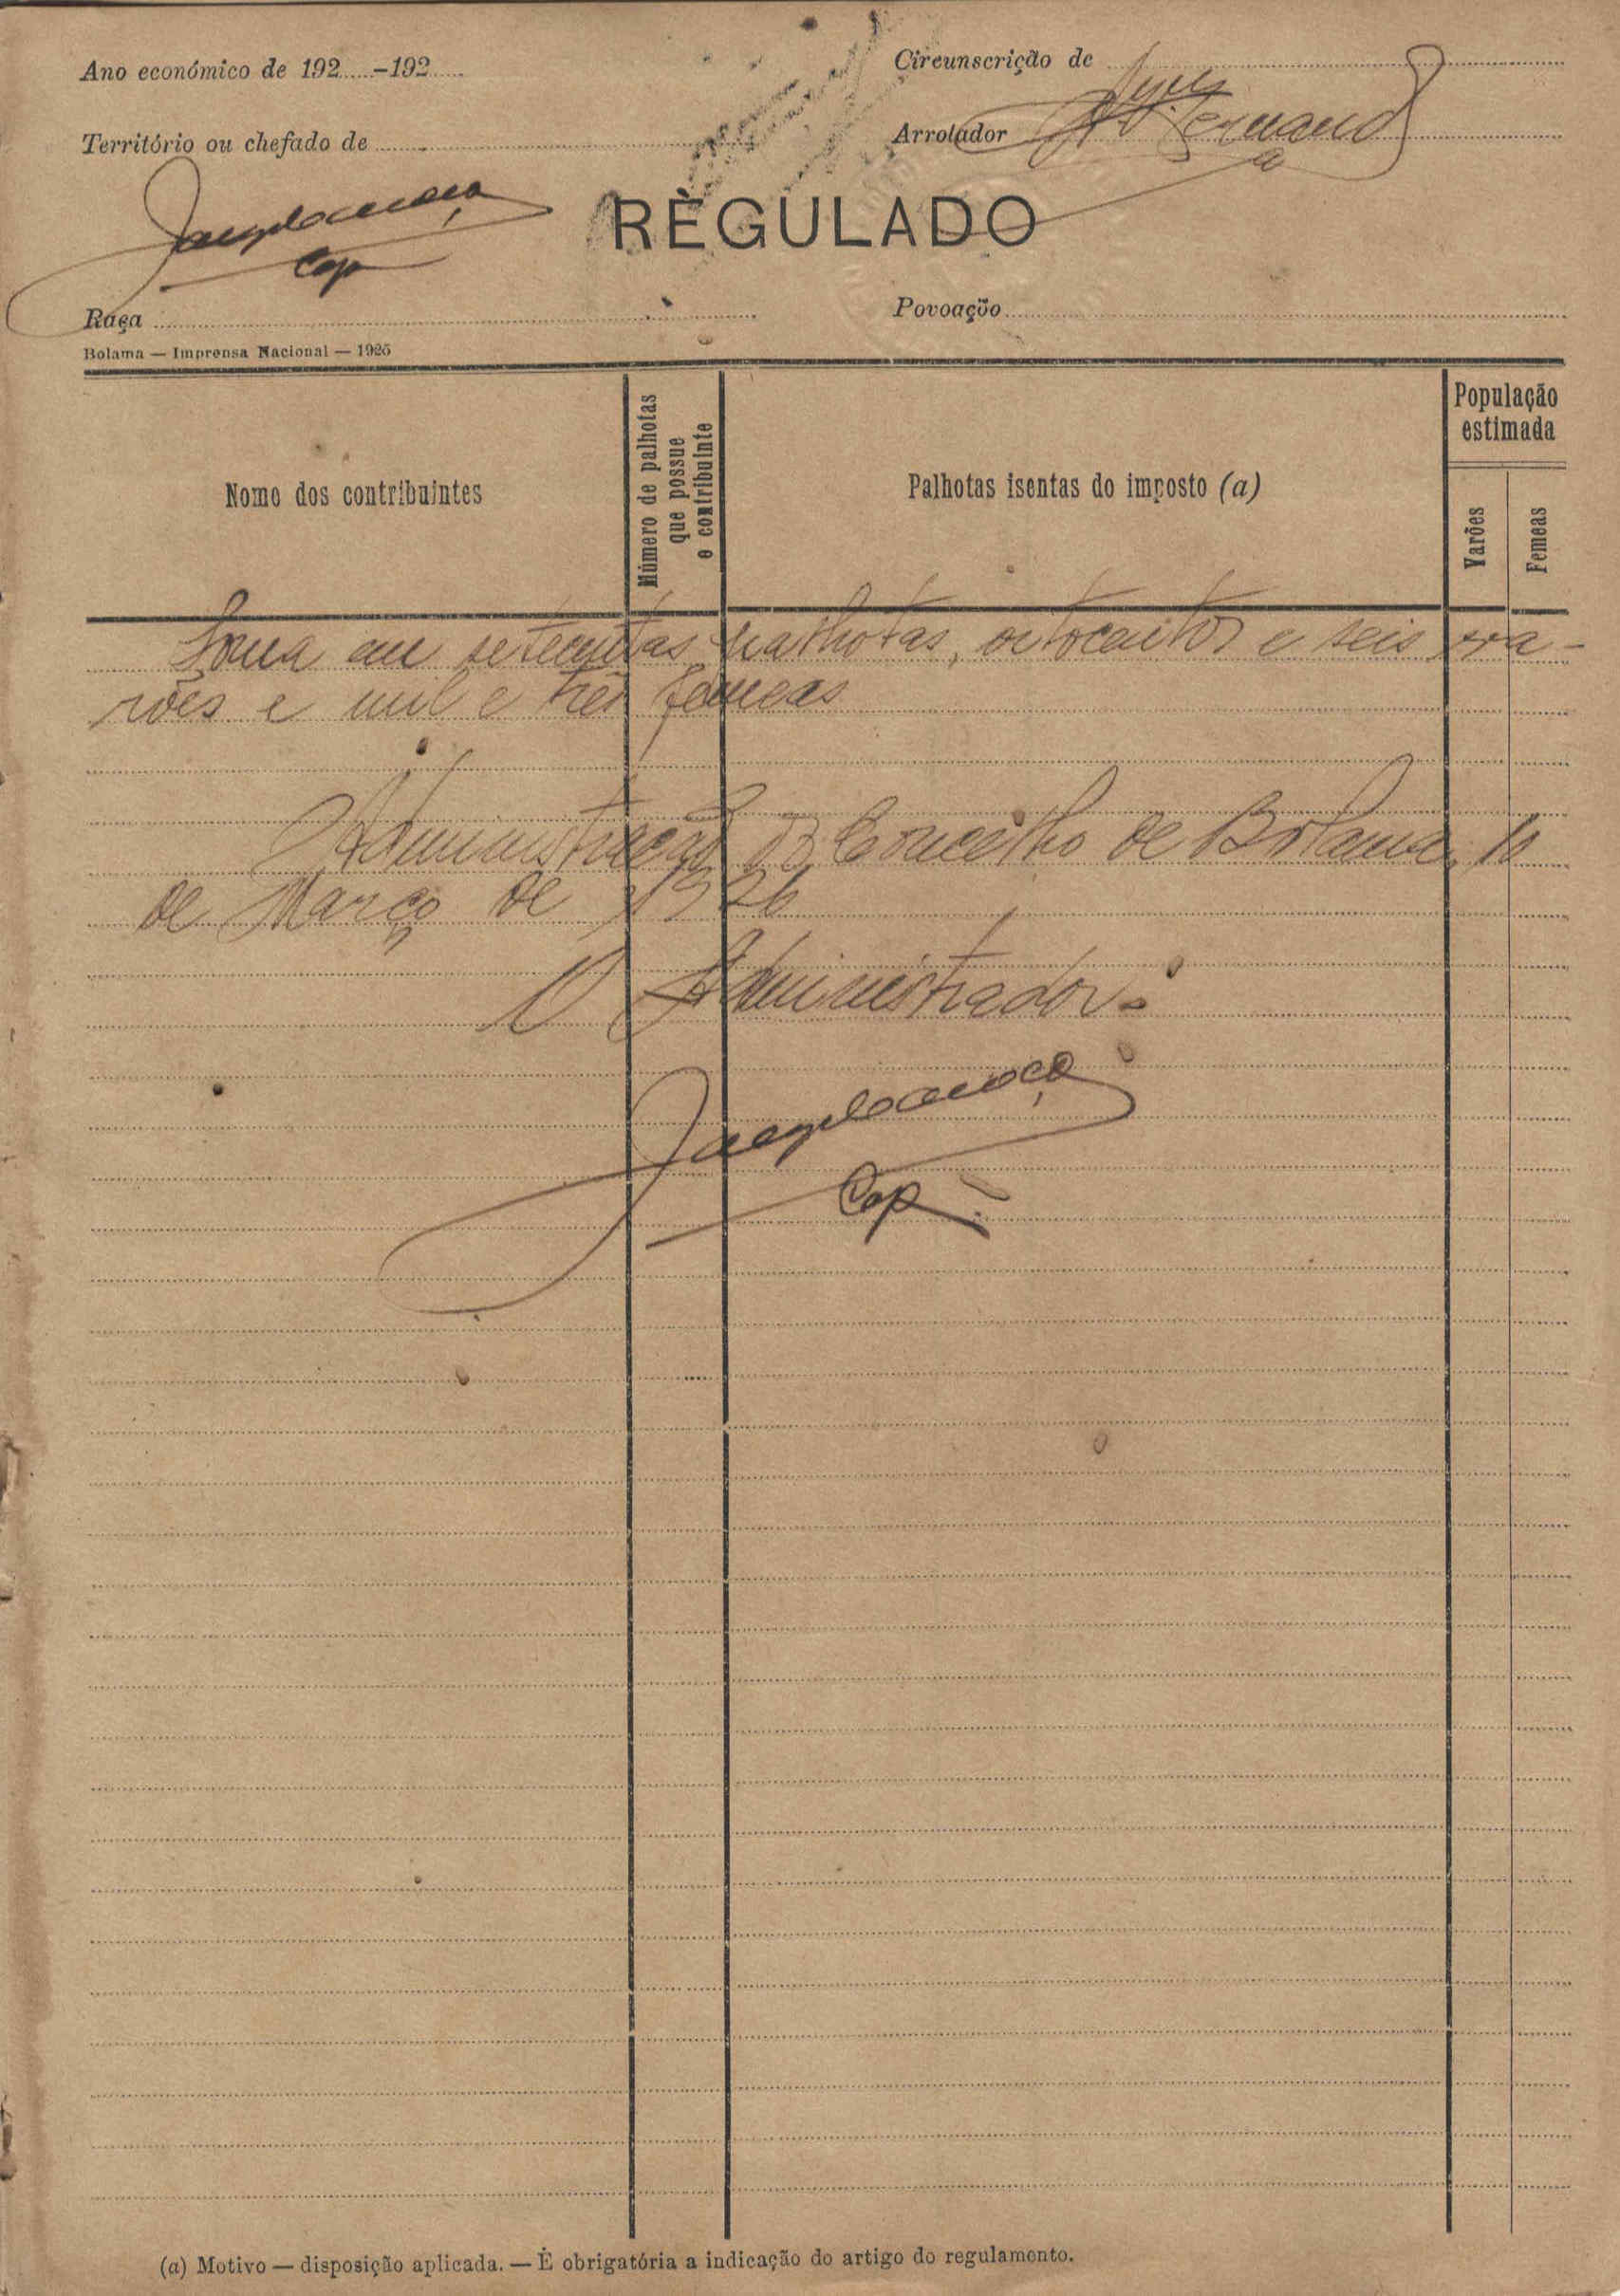 Ano económico de 192......-192......
Circunscrição de
Território ou chefado de
Arrolador
REGULADO
Cap
Raça
Povoação
Bolama — Imprensa Nacional — 1925
Nome dos contribuintes
Número de palhotas que possue o contribuinte
Palhotas isentas do imposto (a)
População estimada
Varões
Femeas
Soma em setecentas palhotas, oitocentos e seis va-
rões e mil e três femeas
Administração do Concelho de Bolama, 10
de Março de 1926
O Administrador
Cap
(a) Motivo — disposição aplicada. — É obrigatória a indicação do artigo do regulamento.